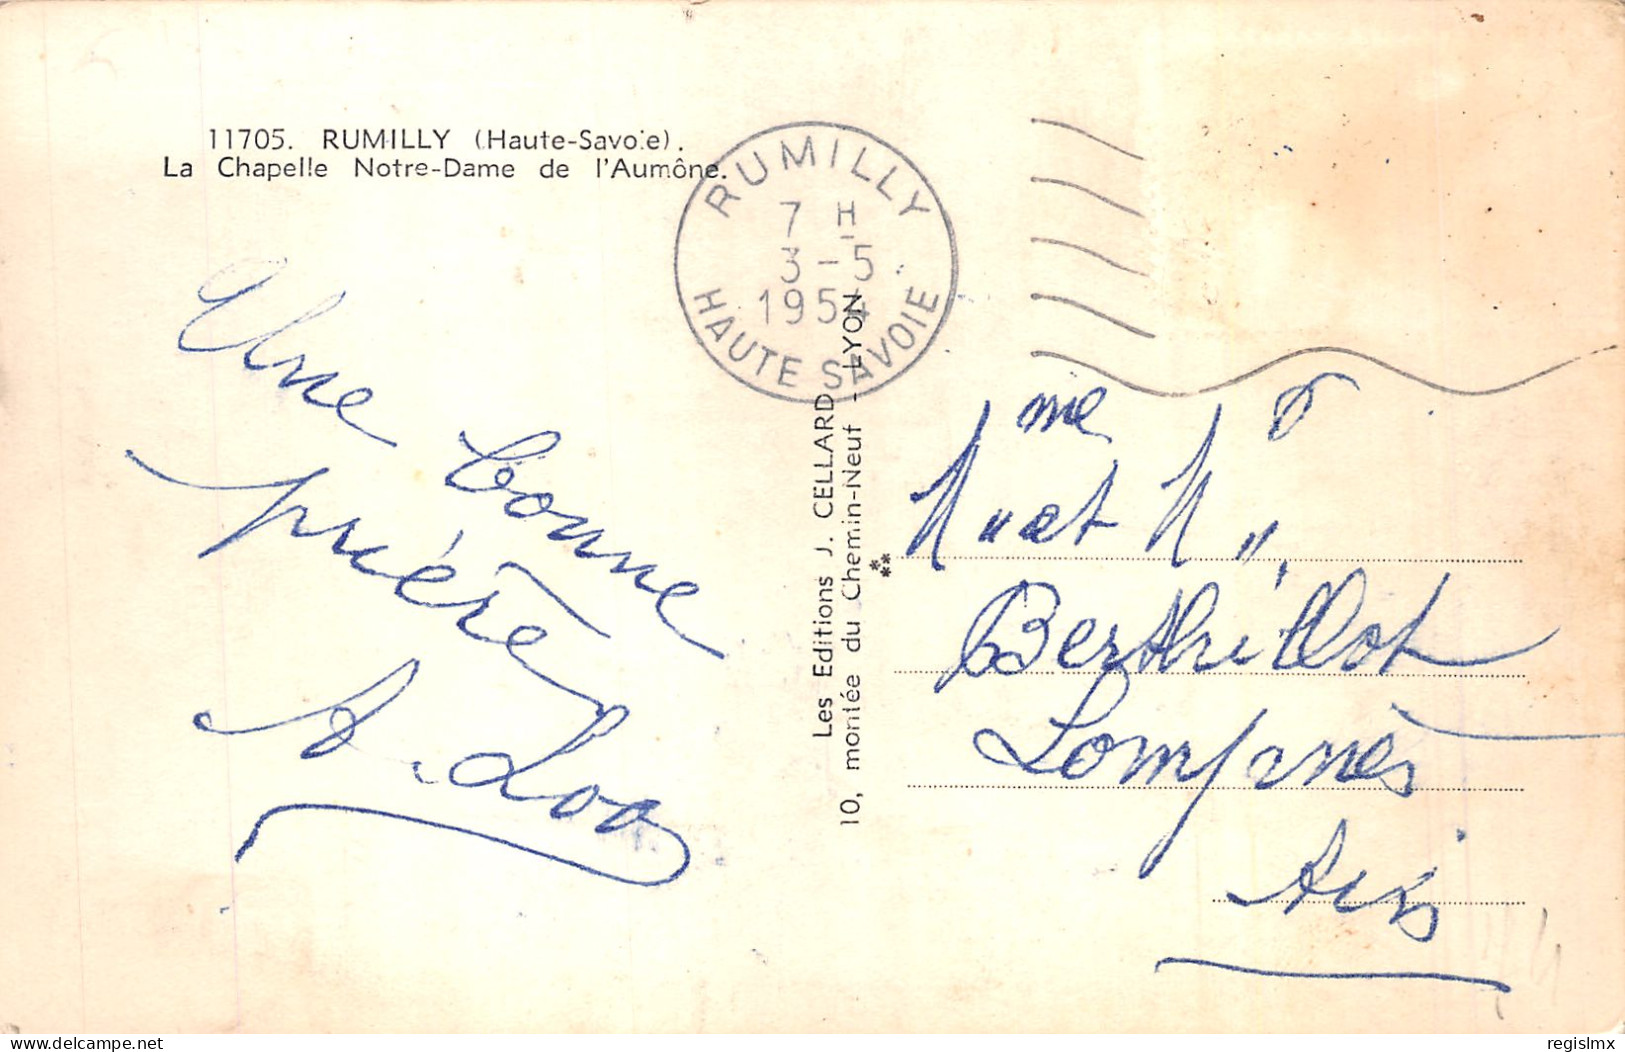 11705. RUMILLY (Haute-Savoie).
La Chapelle Notre-Dame de l'Aumône.
RUMILLY
7 H
3-5
1954
HAUTE SAVOIE
Une bonne
prière
Les Editions J. CELLARD
10, montée du Chemin-Neuf - LYON
Mme et Mr
Berthillot
Lompnes
Ain
delcampe.net
regislmx